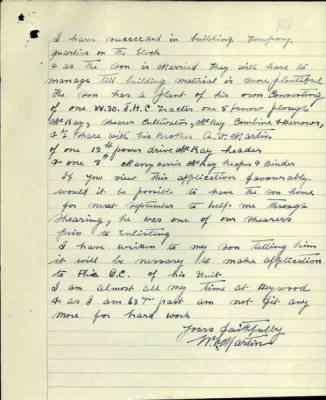 I have succeeded in building Temporary
quarters on the block
& as the son is Married They will have to
manage till building material is more plentiful
The son has a plant of his own Consisting
of one W.30. I.H.C Tractor one 5 furrow plough
McKay, Shearer Cultivator, McKay Combine & Harrows,
& ½ share with his Brother A. W. Martin
of one 12 ft power drive McKay header
& one 8 ft Massey Harris McKay Reaper & Binder
If you view this application favourably
would it be possible to have the son home
for next September to help me through
shearing, he was one of our shearers
prior to Enlisting
I have written to my son telling him
it will be necessary to make application
to this O.C. of his Unit
I am almost all my time at Heywood
& as I am 63 yr past am not fit any
more for hard work
Yours faithfully
Martin